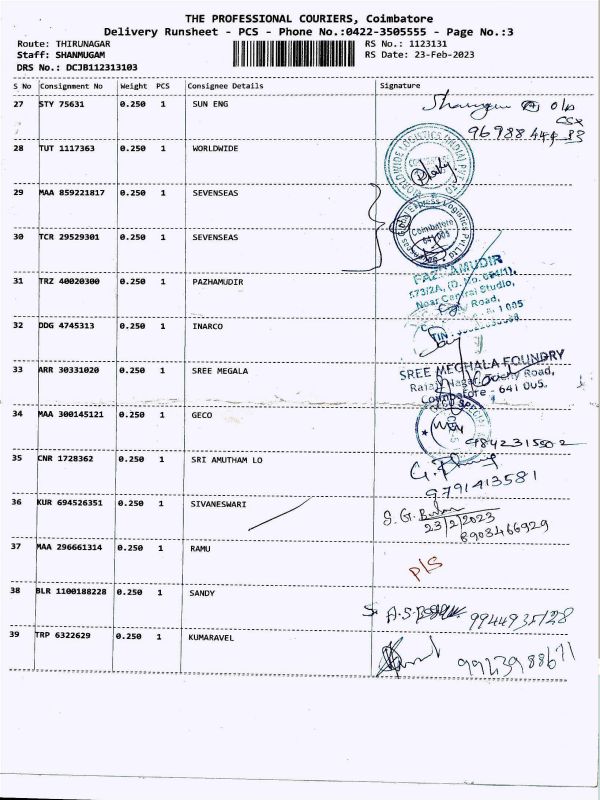 THE PROFESSIONAL COURIERS, Coimbatore
Delivery Runsheet - PCS - Phone No.:0422-3505555 - Page No.:3
Route: THIRUNAGAR RS No.: 1123131
Staff: SHANMUGAM RS Date: 23-Feb-2023
DRS No.: DCJB112313103
S No Consignment No Weight PCS Consignee Details Signature
27 STY 75631 0.250 1 SUN ENG
28 TUT 1117363 0.250 1 WORLDWIDE
29 MAA 859221817 0.250 1 SEVENSEAS
Coimbatore
641 005
30 TCR 29529301 0.250 1 SEVENSEAS
31 TRZ 40020300 0.250 1 PAZHAMUDIR
Near Central Studio,
Road,
32 DDG 4745313 0.250 1 INARCO
SREE MEGHALA FOUNDRY
33 ARR 30331020 0.250 1 SREE MEGALA
Road,
Coimbatore - 641 005.
34 MAA 300145121 0.250 1 GECO
9842315502
35 CNR 1728362 0.250 1 SRI AMUTHAM LO
9791413581
36 KUR 694526351 0.250 1 SIVANESWARI
S. G.
23/2/2023
8903466929
37 MAA 296661314 0.250 1 RAMU
P/S
38 BLR 1100188228 0.250 1 SANDY
9944935128
39 TRP 6322629 0.250 1 KUMARAVEL